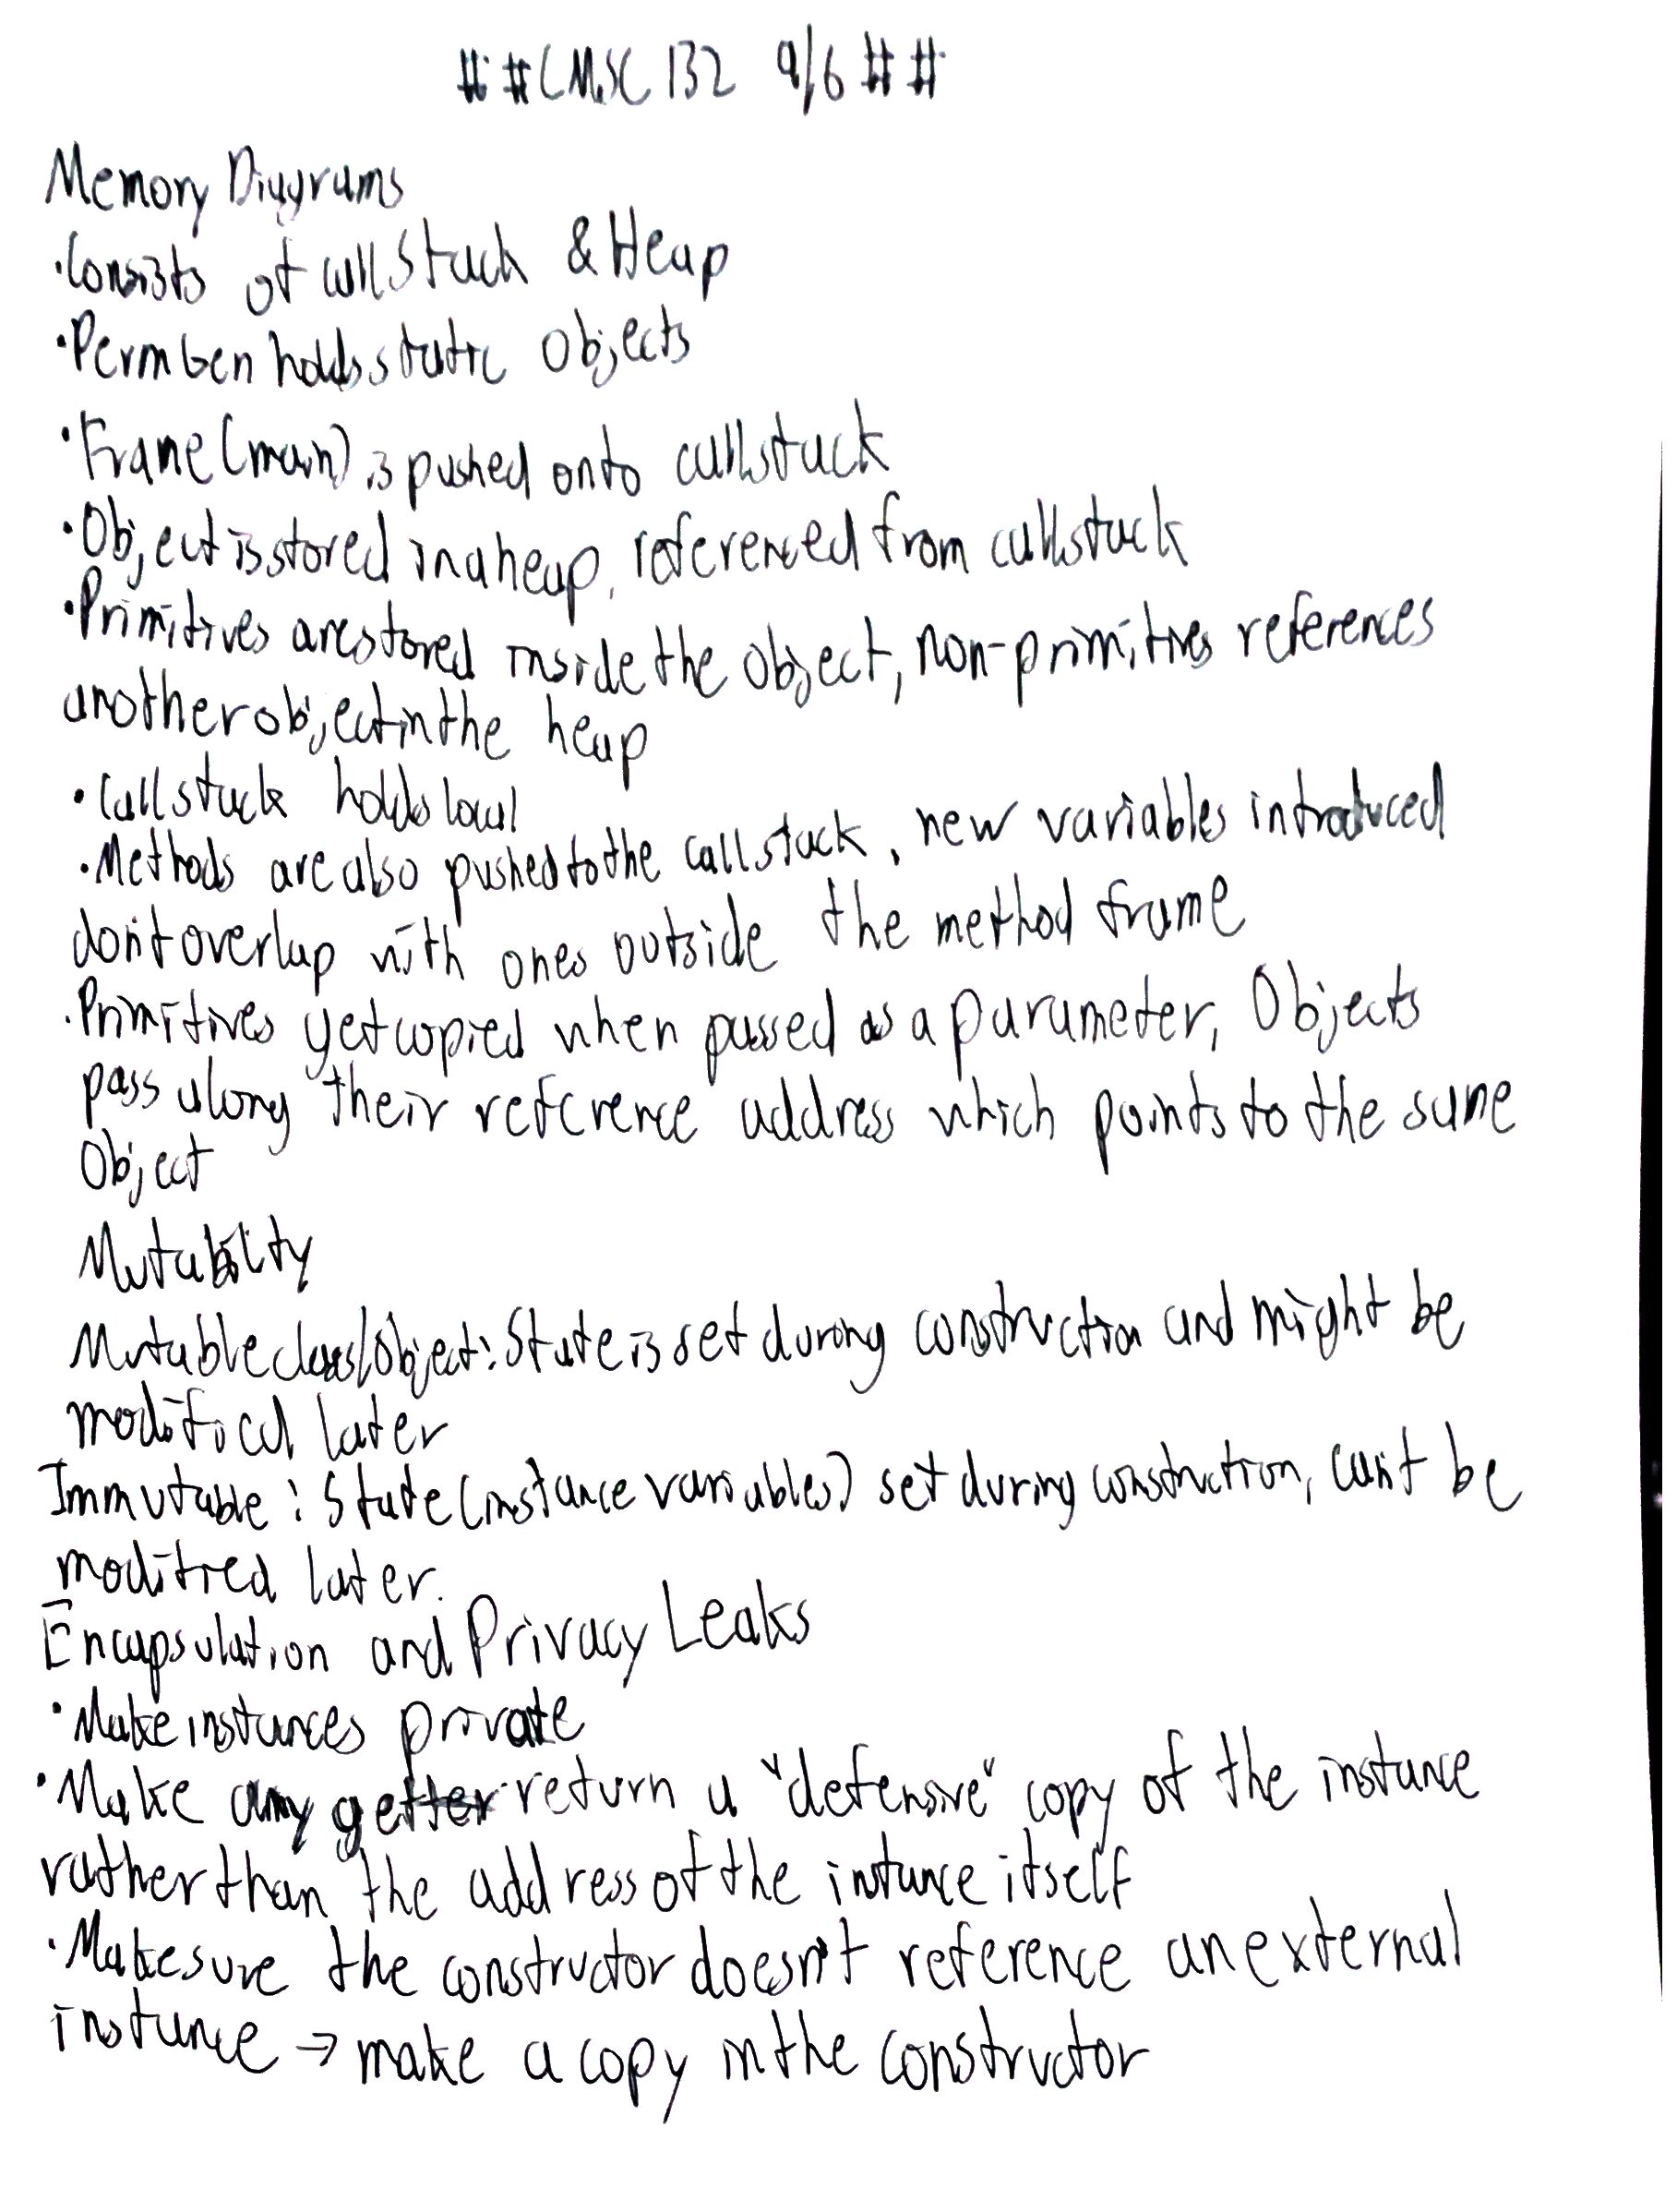 ##CMSC 132 9/6##
Memory Diagrams
·Consists of callStack & Heap
·PermGen holds static Objects
·Frame (main) is pushed onto callstack
·Object is stored in a heap, referenced from callstack
·Primitives are stored inside the object, non-primitives references
another object in the heap
·Callstack holds local
·Methods are also pushed to the callstack, new variables introduced
don't overlap with ones outside the method frame
·Primitives get copied when passed as a parameter, Objects
pass along their reference address which points to the same
Object
Mutability
Mutable class/object: State is set during construction and might be
modified later
Immutable: State (instance variables) set during construction, can't be
modified later.
Encapsulation and Privacy Leaks
·Make instances private
·Make any getter return a "defensive" copy of the instance
rather than the address of the instance itself
·Make sure the constructor doesn't reference an external
instance → make a copy in the constructor